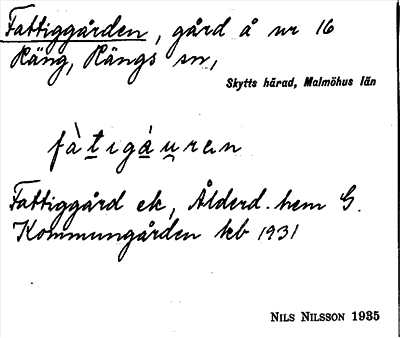 Fattiggården, gård å nr 16
Räng, Rängs sn,
Skytts härad, Malmöhus län
fàtigáuren
Fattiggård ek, Ålderd.hem G.
Kommungården kb 1931
NILS NILSSON 1935